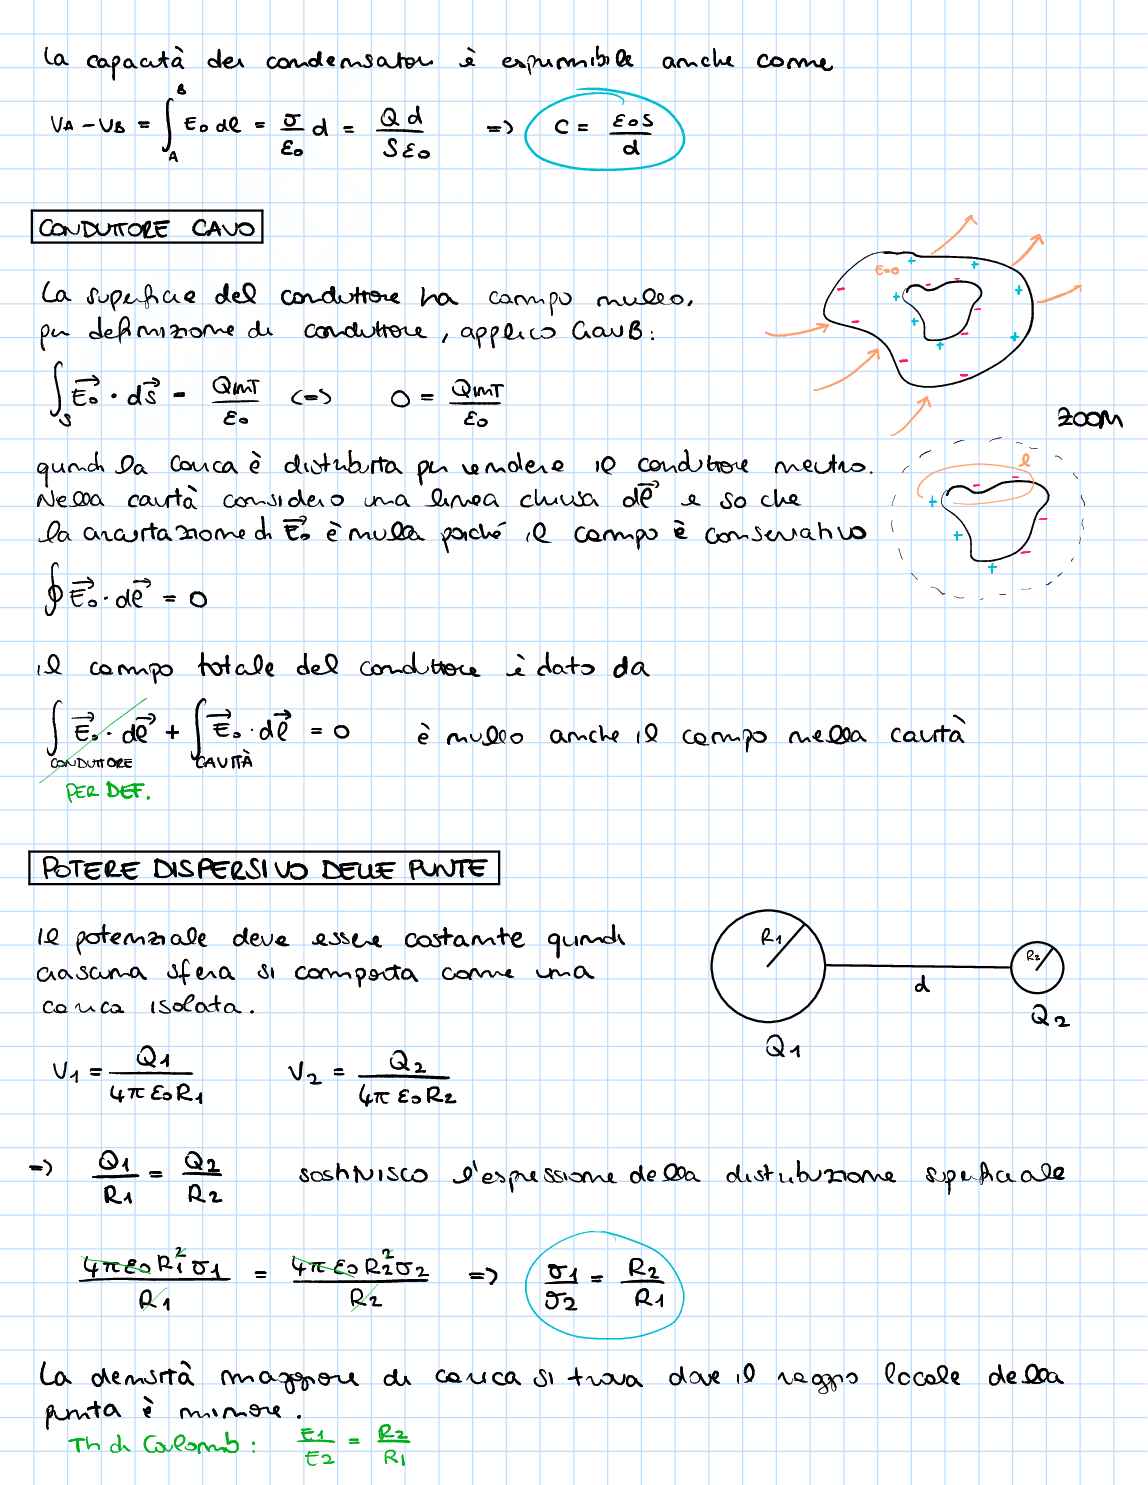 La capacità dei condensatori è esprimibile anche come
VA - VB = ∫_A^B E0 dl = σ/ε0 d = Q d / S ε0 => C = ε0 S / d
CONDUTTORE CAVO
La superficie del conduttore ha campo nullo,
per definizione di conduttore, applico Gauß:
∫_S E0 · ds = QINT/ε0 <=> 0 = QINT/ε0
quindi la carica è distribuita per rendere il conduttore neutro.
Nella cavità considero una linea chiusa dl e so che
la circuitazione di E0 è nulla poiché il campo è conservativo
∮ E0 · dl = 0
E=0
ZOOM
l
il campo totale del conduttore è dato da
∫_CONDUTTORE E0 · dl + ∫_CAVITÀ E0 · dl = 0 è nullo anche il campo nella cavità
PER DEF.
POTERE DISPERSIVO DELLE PUNTE
Il potenziale deve essere costante quindi
ciascuna sfera si comporta come una
carica isolata.
R1
d
R2
Q1
Q2
V1 = Q1 / 4π ε0 R1 V2 = Q2 / 4π ε0 R2
=> Q1/R1 = Q2/R2 sostituisco l'espressione della distribuzione superficiale
4π ε0 R1² σ1 / R1 = 4π ε0 R2² σ2 / R2 => σ1/σ2 = R2/R1
La densità maggiore di carica si trova dove il raggio locale della
punta è minore.
Th di Coulomb: E1/E2 = R2/R1